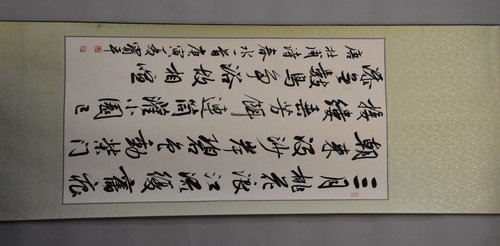 三月桃花浪江流復舊痕
朝來沒沙尾碧色動柴門
接縷垂芳餌連筒灌小園已
添無數鳥爭浴故相喧
唐杜甫詩春水一首庚寅